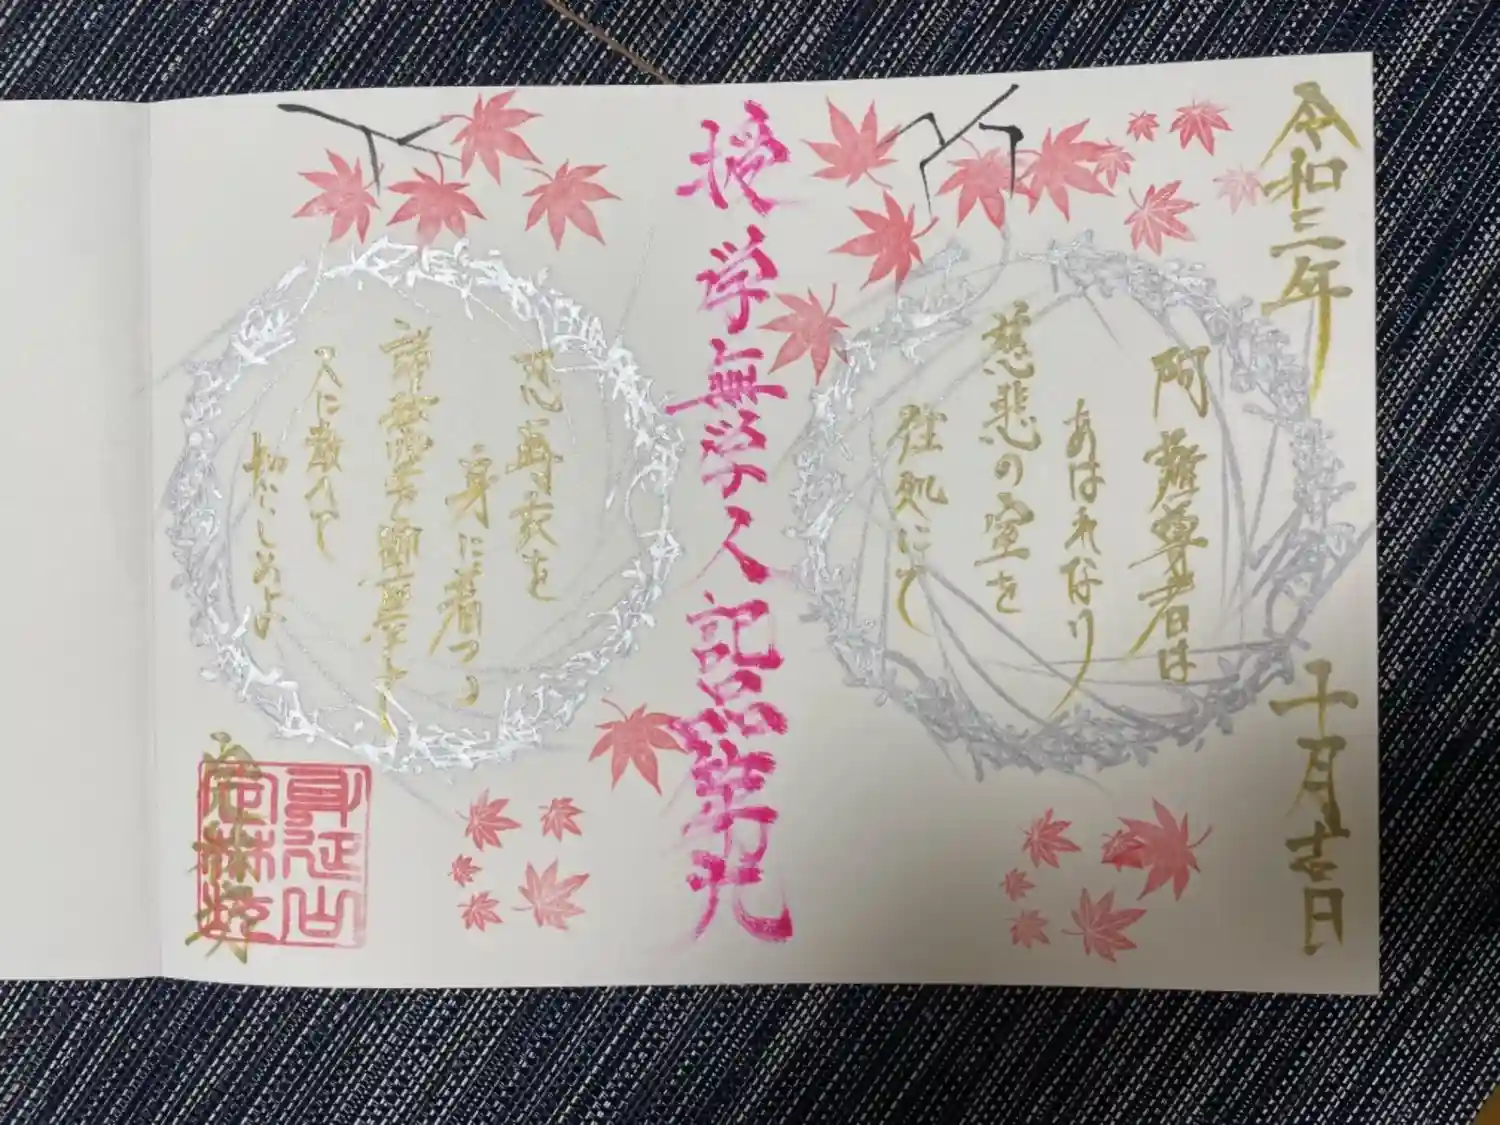 令和三年 十月吉日
阿難尊者は
あはれなり
慈悲の室を
住処にて
授学無学人記品第九
忍辱衣を
身に着つつ
人に教へて
知らしめよ
身延山